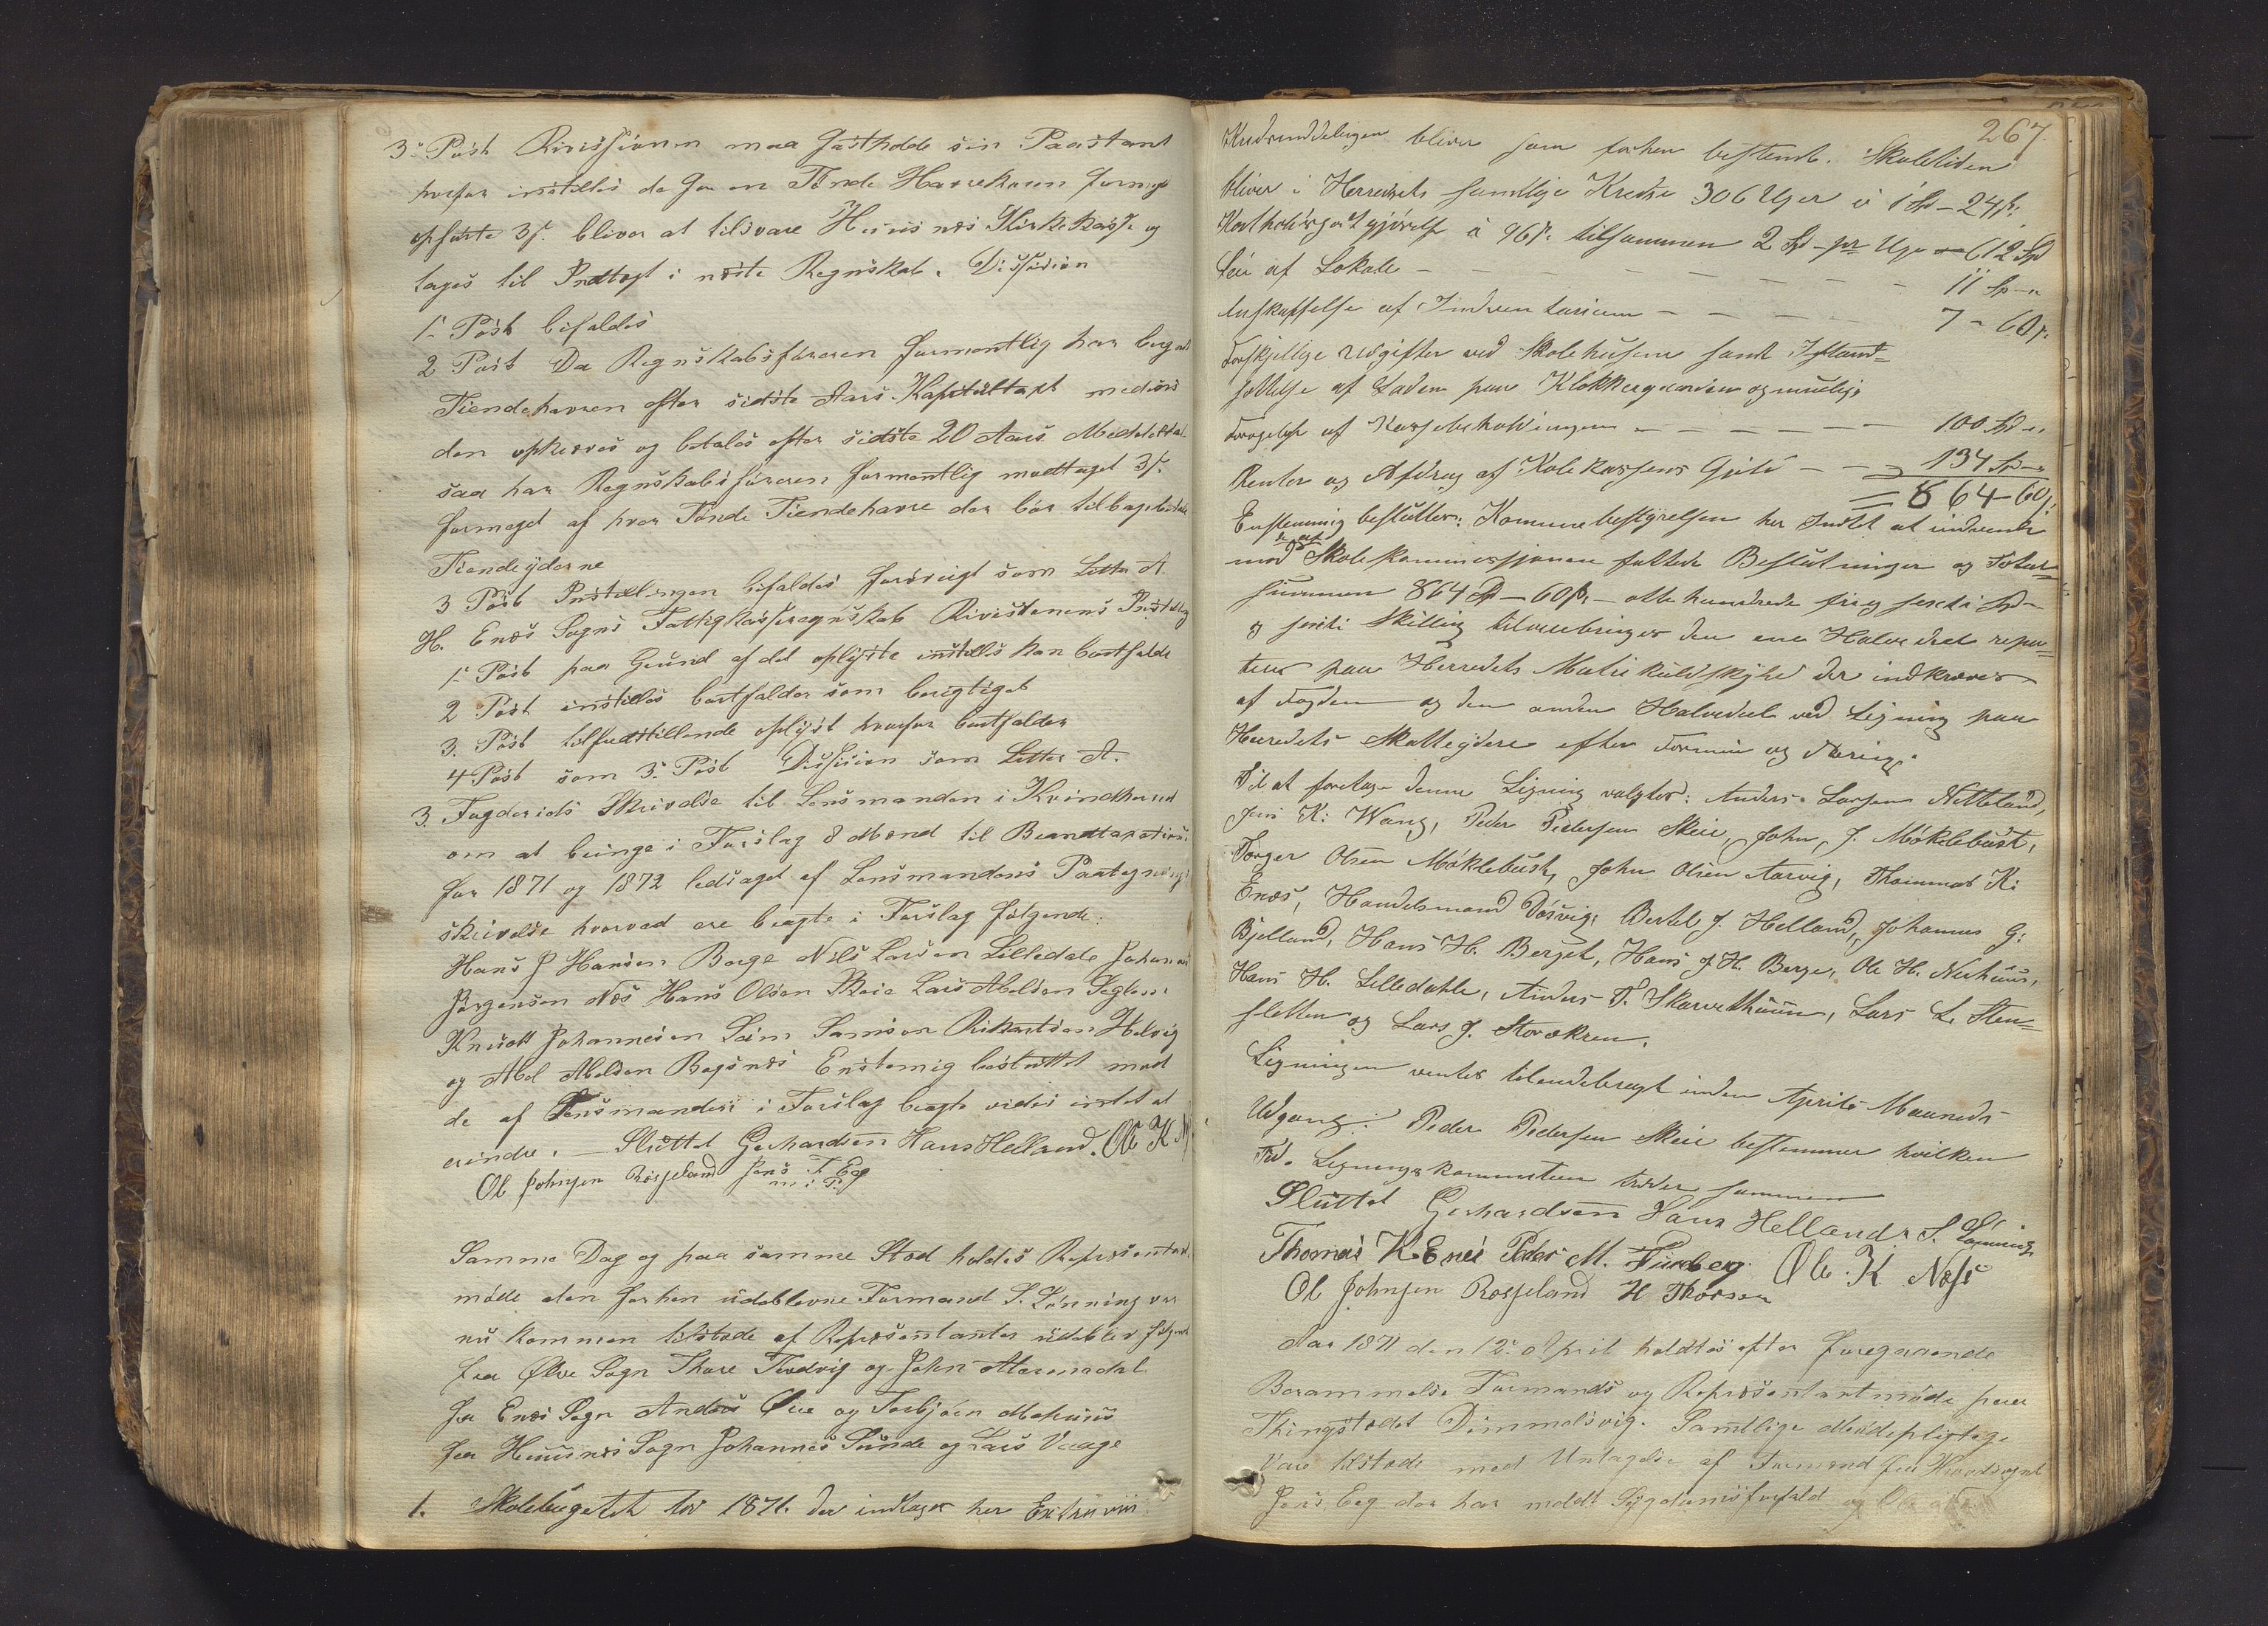 3.' Post Revissionen maa fastholde sin Paastand
hvorfor instilles de for en Tønde Havrekorn formeget
opførte 3 s. bliver at tilsvare Huusnæs Kirkekasse og
tages til Indtægt i næste Regnskab. Dissision
1.' Post bifaldes
2 Post Da Regnskabsføreren formentlig har beregnet
Tiendehavren efter sidste Aars Kapitultaxt medens
den opkræves og betales efter sidste 20 Aars Middeltal
saa har Regnskabsføreren formentlig modtaget 3 s.
formeget af hver Tønde Tiendehavre der bør tilbagebetales
Tiendeyderne
3 Post Instillingen bifaldes forøvrigt som Litter A
H. Enæs Sogns Fattigkasseregnskab Rivistenens Instilling
1.' Post paa Grund af det oplyste instilles kan bortfalde
2 Post instilles bortfalder som berigtiget
3. Post tilfredstillende oplyst hvorfor bortfalder
4 Post som 3.' Post Dissision som Litter A.
3. Fogderiets Skrivelse til Lensmanden i Kvindherred
om at bringe i Forslag 8 Mænd til Brandtaxations
for 1871 og 1872 ledsaget af Lensmandens Paategnings
skrivelse hvorved ere bragte i Forslag følgende:
Hans J Hansen Berge Nils Larsen Lilledale Johannes
Jørgensen Næs Hans Olsen Skeie Lars Abelsen Seglem
Knudt Johannesen Sæm Samson Rikertsen Helvig
og Abel Abelsen Bogsnæs Enstemig besluttet mod
de af Lensmanden i Forslag bragte vides intet at
erindre. – Sluttet Gerhardsen Hans Helland. Ole K N
Ole Johnsen Rosseland Jens T. Eeg
m. i P.
Samme Dag og paa samme Sted holdes Repræsentant
møde den forhen udeblevne Formand S. Lønning var
nu kommen tilstæde af Repræsentanter udeblev følgende
fra Ølve Sogn Thore Tvedvig og John
fra Enæs Sogn Anders Øie og Torbjørn
fra Huusnæs Sogn Johannes Sunde og Lars Vaage
1. Skolebugetet for 1871. der indtages her Extra viis
267.
Kredsinddelingen bliver som forhen bestemt. Skoletiden
bliver i Herredets samtlige Kredse 306 Uger à 1 Sp – 24 s:
Kostholdsgodtgjørelse à 96 s. tilsammen 2 Sp – pr Uge 612 Spd
Leie af Lokale – – – – – – – 11 Sp – "
Anskaffelse af Indventarium – – – – 7 – 60 s.
Forskjellige Udgifter ved Skolehusene samt Istand-
sættelse af Laden paa Klokkergaarden og muelig
Forøgelse af Kassebeholdningen – – – – – 100 Sp – "
Renter og Afdrag af Skolekassens Gjeld – – – 134 Sp – "
= 864 – 60 s.
Enstemmig besluttes: Kommunebestyrelsen har Intet at indvende
mod de af Skolekommissjonen fattede Beslutninger og Total-
summen 864 Sp – 60 s. – otte hundrede fire og sexti Spd
og sexti Skilling tilveiebringes den ene Halvedeel repar-
teres paa Herredets Matrikulskyld der indkræves
af Fogden og den anden Halvedeel ved Ligning paa
Herredets Skatteydere efter Formue og Næring.
Til at foretage denne Ligning valgtes: Anders Larsen Netteland,
Jens K: Wang, Peder Pedersen Skeie, John J. Møklebust,
Torger Olsen Møklebust, John Olsen Aarvig, Thommas K:
Enæs, Handelsmand Døsvig, Bertel J. Helland, Johannes G:
Bjelland, Hans H. Berget, Hans J H. Berge, Ole H. Nerhuus,
Hans H. Lilledahle, Anders T. Skarvethuun, Lars L. Sten-
sletten og Lars J. Storøkren.
Ligningen ventes tilendebragt inden Aprils Maaneds
Udgang. Peder Pedersen Skeie bestemmer hvilken
Tid. Ligningskommiteen træder sammen
Sluttet Gerhardsen Hans Helland S. Lønning
Thomas K Enes Peder M. Furberg Ole K Næss
Ole Johnsen Rosseland H Thorsen
Aar 1871 den 12.' April holdtes efter foregaaende
Berammelse Formands og Repræsentantmøde paa
Thingstedet Dimmelsvig. Samtlige Mødepligtige
Vare tilstede med Untagelse af Formand fra Hovedsognet
Jens Eeg der har meldt Sygdomsforfald og